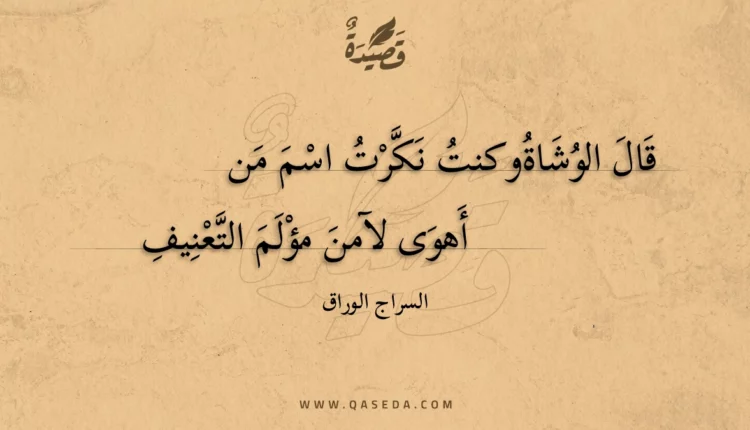 قَصِيْدَةٌ
قَالَ الوُشَاةُوكنتُ نَكَّرْتُ اسْمَ مَن
أَهوَى لآمنَ مؤْلَمَ التَّعْنِيفِ
السراج الوراق
WWW.QASEDA.COM